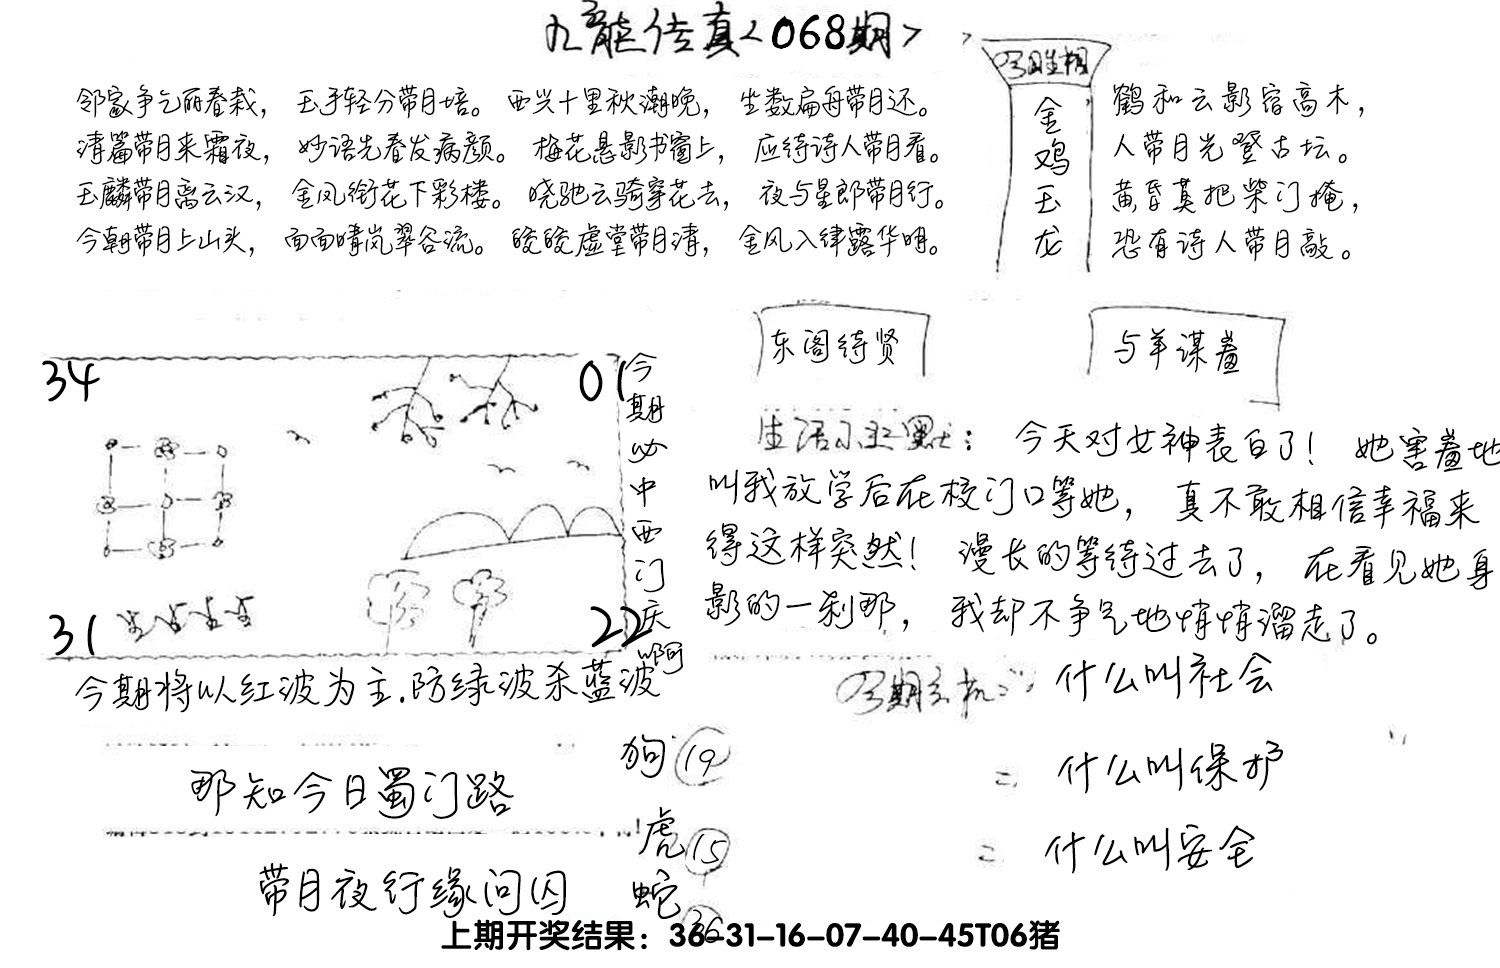 九龙传真<068期>
邻家争乞丽春栽， 玉手轻分带月培。 西兴十里秋潮晚， 生数扁舟带月还。
清篇带月来霜夜， 妙语先春发病颜。 梅花悬影书窗上， 应待诗人带月看。
玉麟带月离云汉， 金凤衔花下彩楼。 晓驰云骑穿花去， 夜与星郎带月行。
今朝带月上山头， 面面晴岚翠谷流。 皎皎虚堂带月清， 金风入律露华明。
金鸡玉龙
鹤和云影宿高木，
人带月光登古坛。
黄昏莫把柴门掩，
恐有诗人带月敲。
东阁待贤
与羊谋羞
34
01
31
22
今期必中西门庆啊
今期将以红波为主.防绿波杀蓝波
生活幽默： 今天对女神表白了！ 她害羞地
叫我放学后在校门口等她， 真不敢相信幸福来
得这样突然！ 漫长的等待过去了， 在看见她身
影的一刹那， 我却不争气地悄悄溜走了。
什么叫社会
什么叫保护
什么叫安全
那知今日蜀门路
带月夜行缘问囚
狗 19
虎 15
蛇 36
上期开奖结果：36-31-16-07-40-45T06猪